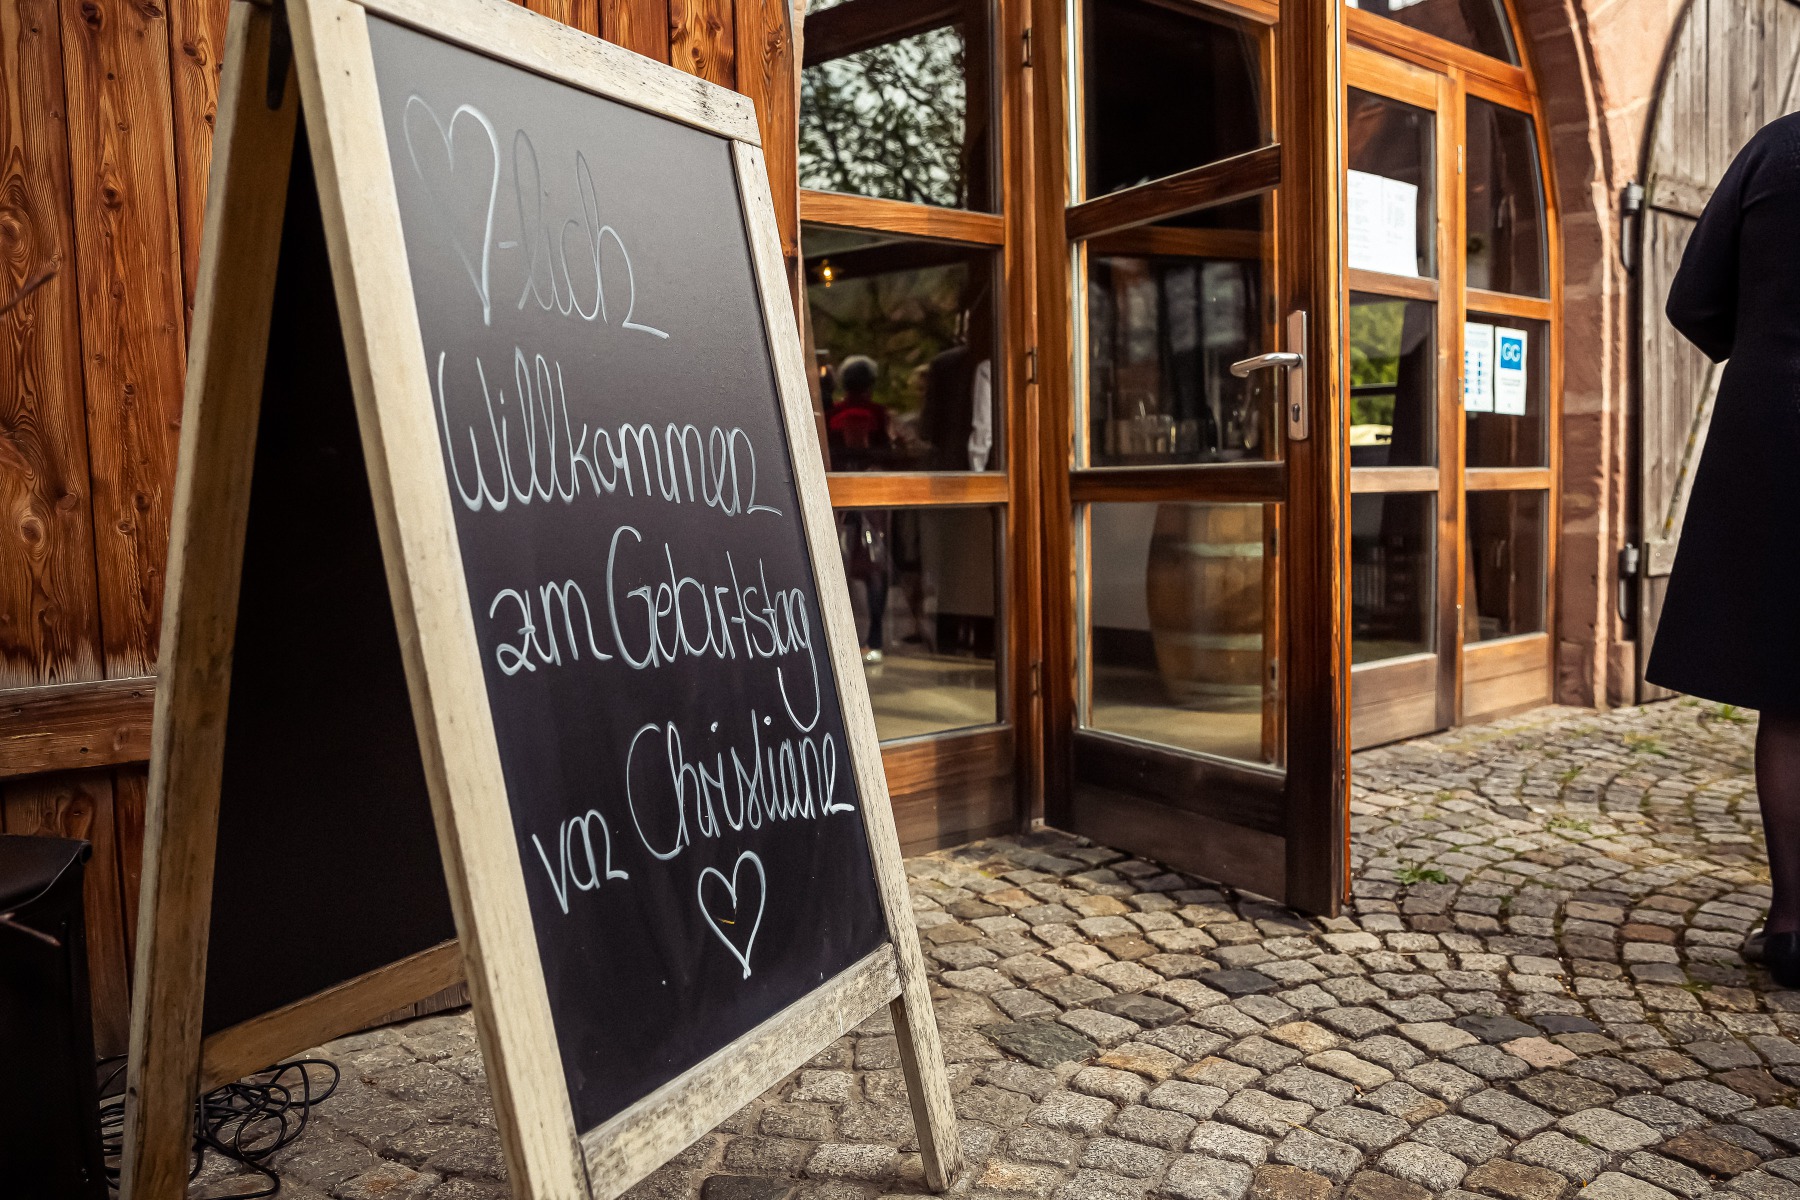 ♡-lich
Willkommen
zum Geburtstag
von Christiane
♡
GG